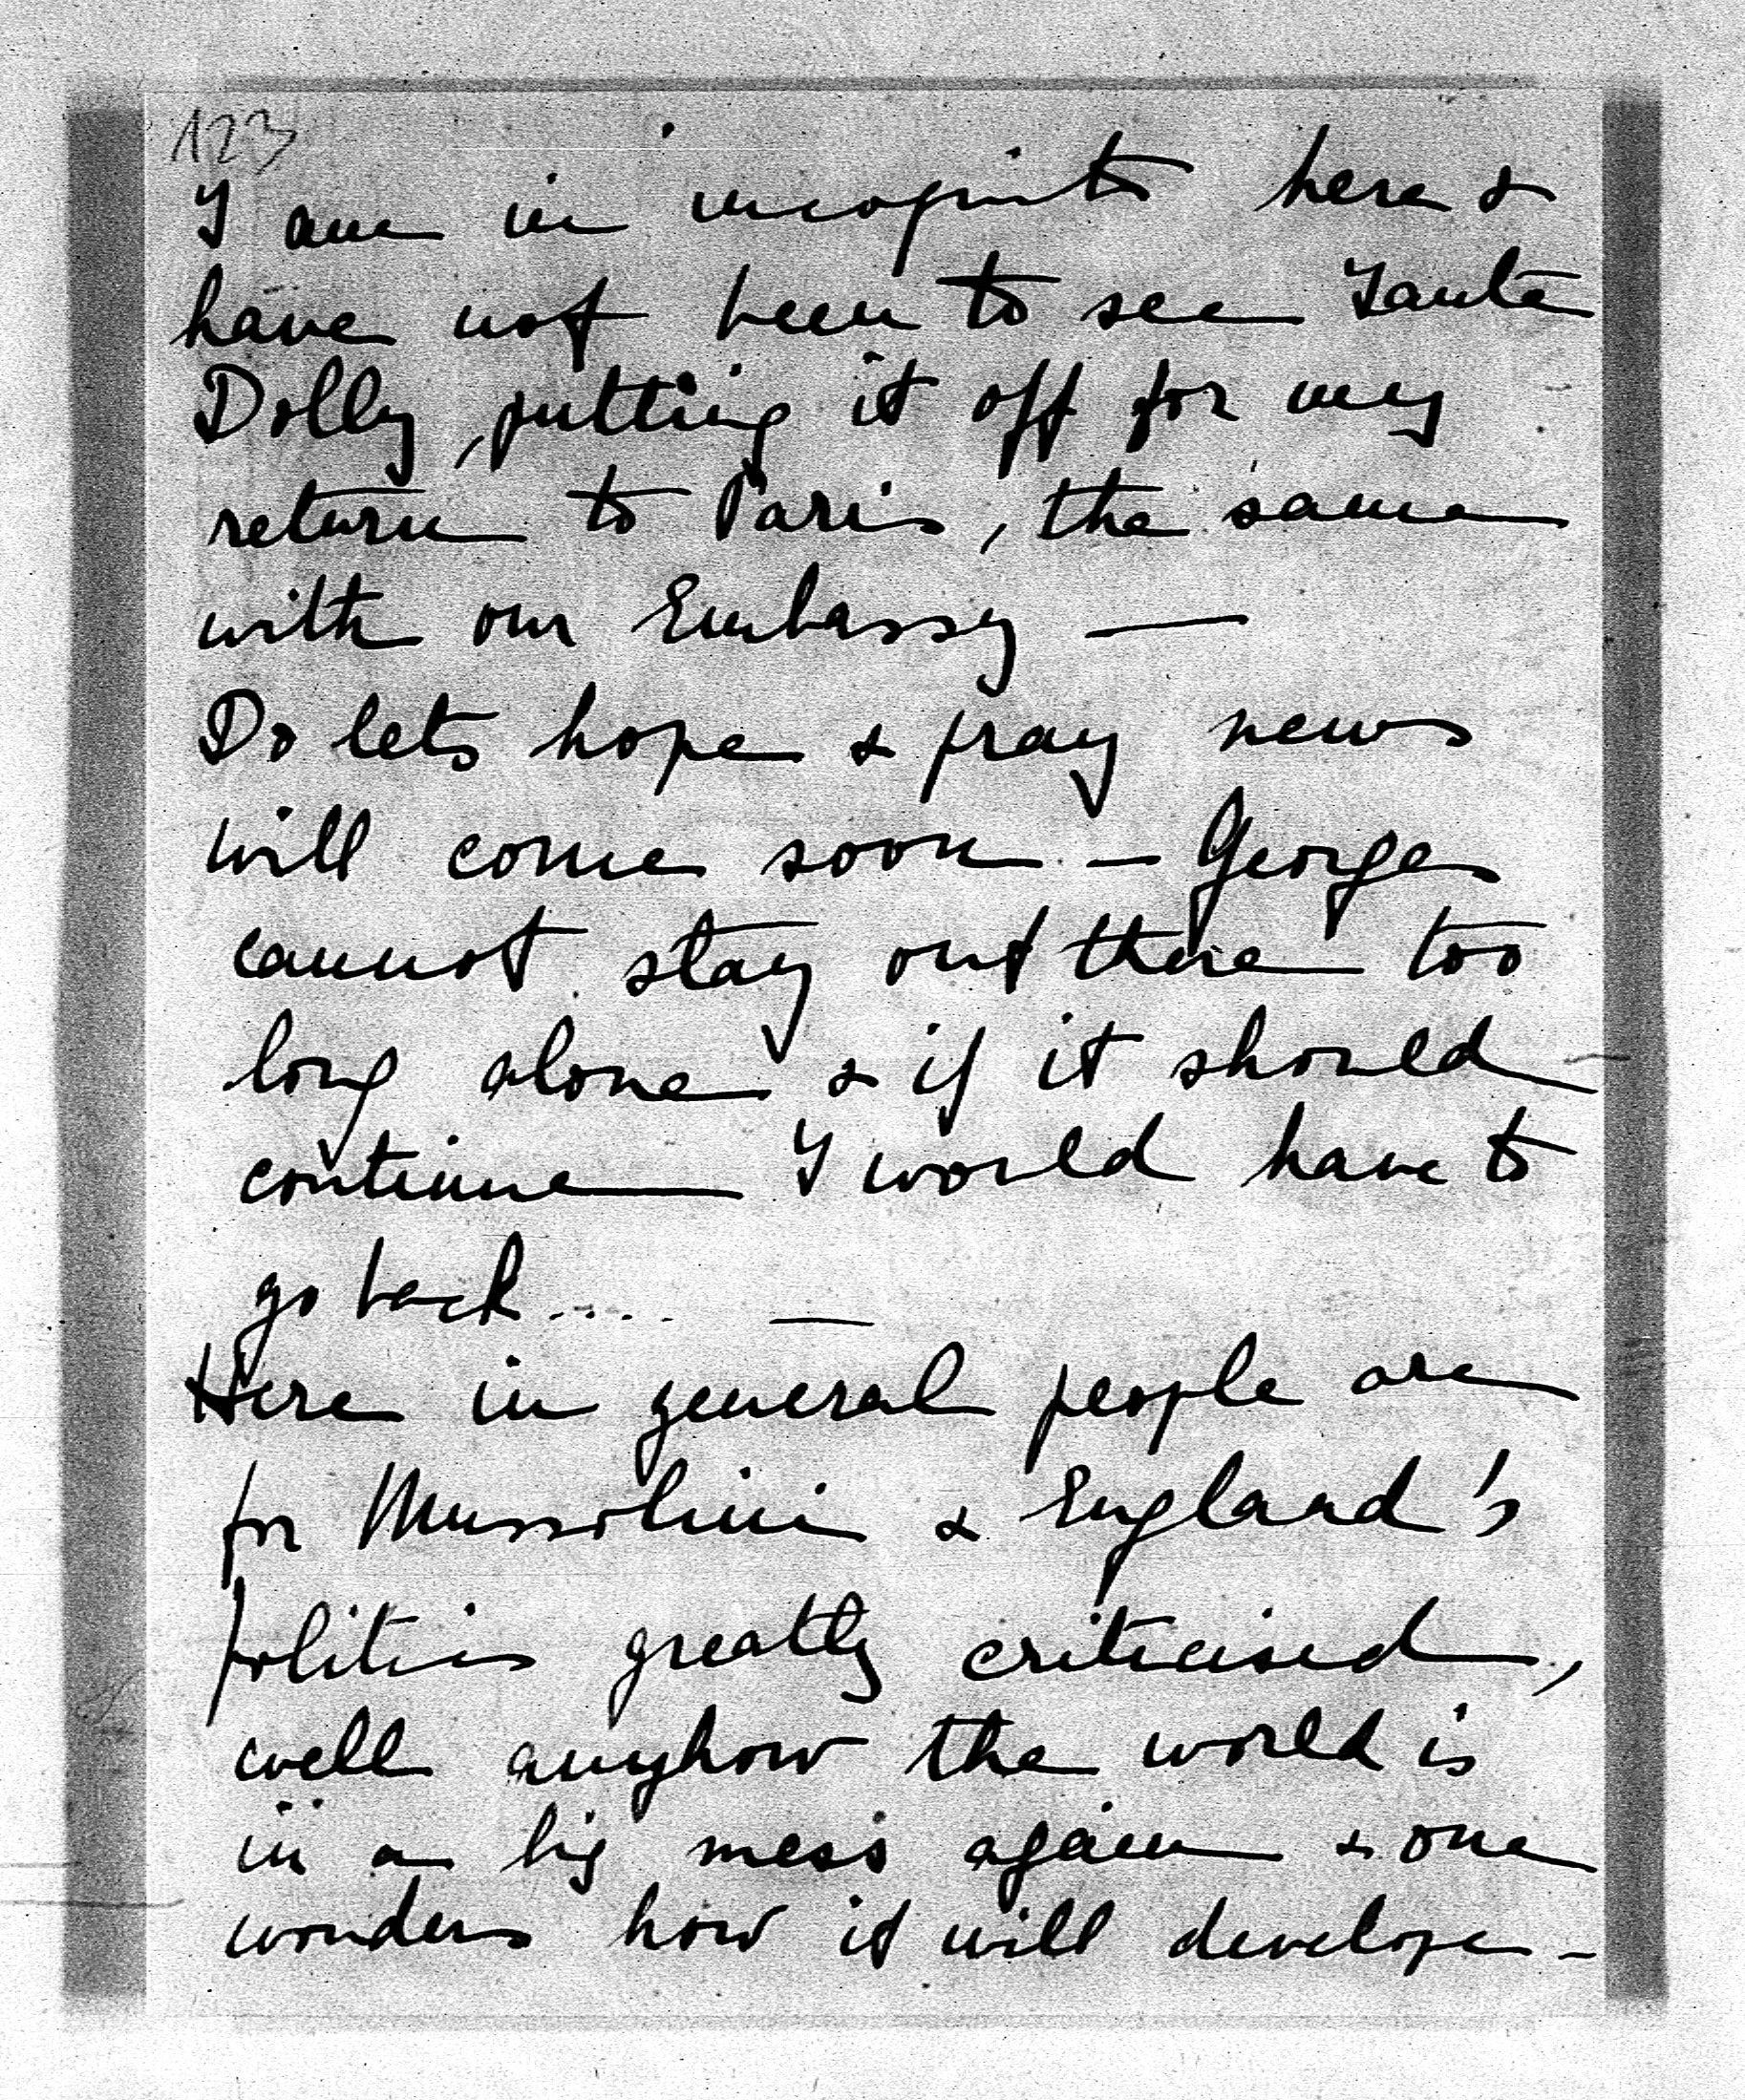 123
I am in incognito here &
have not been to see Tante
Dolly, putting it off for my
return to Paris, the same
with our Embassy —
Do lets hope & pray news
will come soon — George
cannot stay out there too
long alone & if it should
continue I would have to
go back..... —
Here in general people are
for Mussolini & England's
politics greatly criticised,
well anyhow the world is
in a big mess again & one
wonders how it will develope -